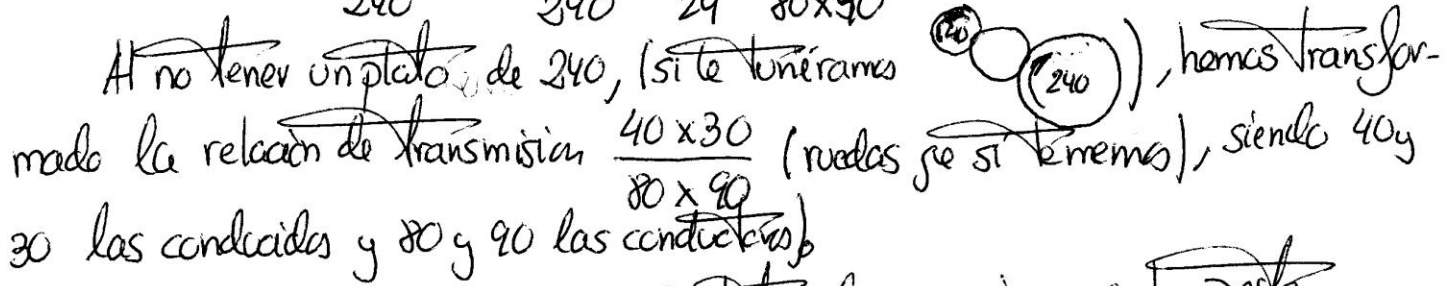 240 240 24 80x90
Al no tener un plato de 240, (si le tuviéramos 40 240), hemos transfor-
mado la relación de transmisión 40 x 30 / 80 x 90 (ruedas que sí tenemos), siendo 40 y
30 las conducidas y 80 y 90 las conductoras.